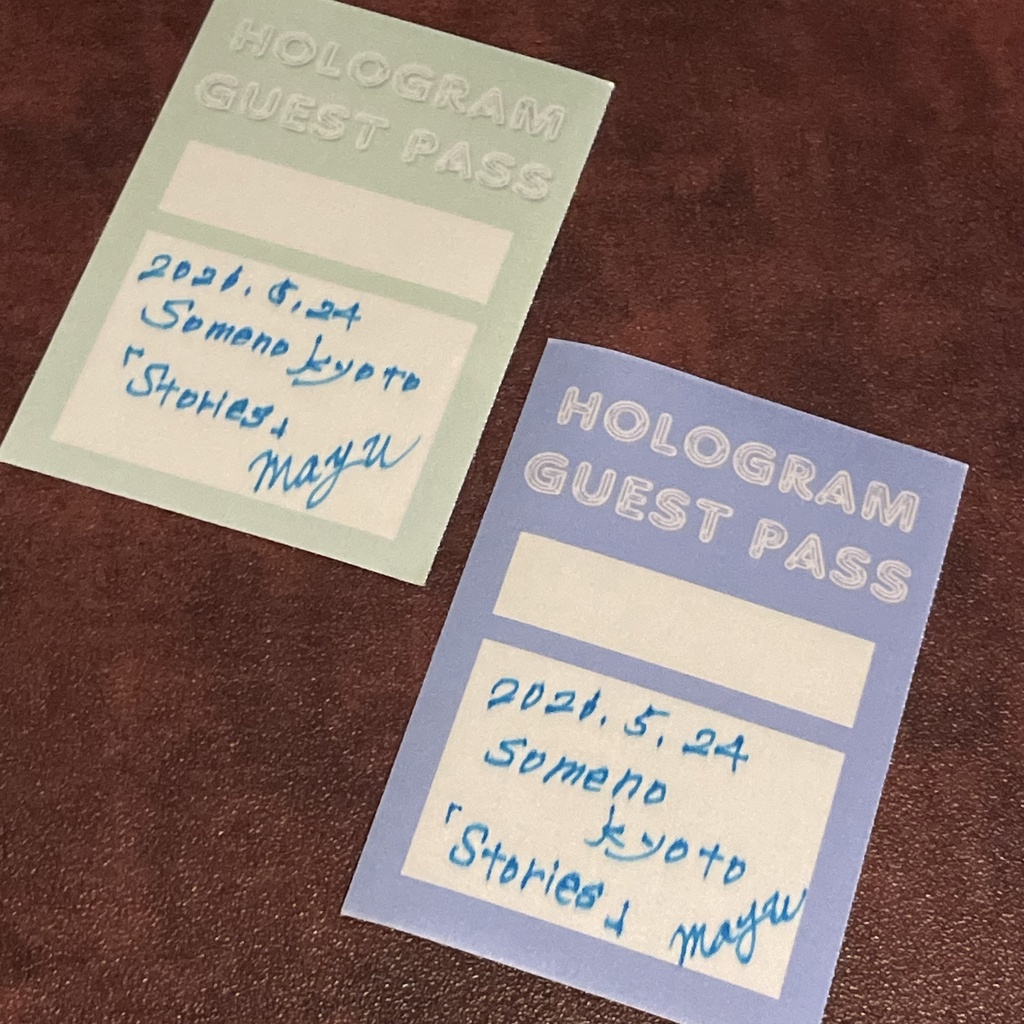 HOLOGRAM
GUEST PASS
2021.5.24
Someno kyoto
「Stories」
mayu
HOLOGRAM
GUEST PASS
2021.5.24
Someno
kyoto
「Stories」
mayu